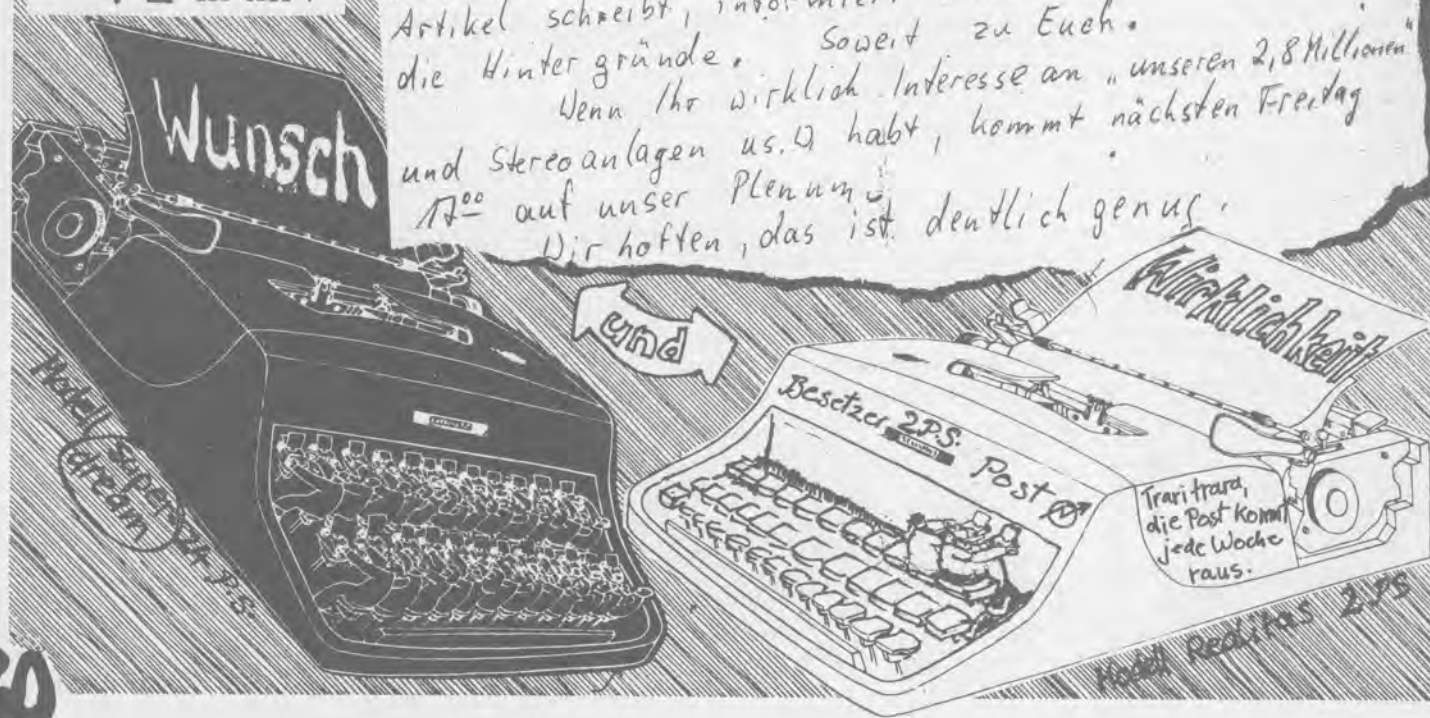 Artikel schreibt,
die Hintergründe. Soweit zu Euch.
Wenn Ihr wirklich Interesse an „unseren 2,8 Millionen“
und Stereoanlagen us.w habt, kommt nächsten Freitag
17⁰⁰ auf unser Plenum.
Wir hoffen, das ist deutlich genug.
Wunsch
und
Wirklichkeit
Besetzer 2P.S. Post
Trari trara,
die Post kommt
jede Woche
raus.
Modell Super
dream 24 P.S.
Modell Realitas 2 PS